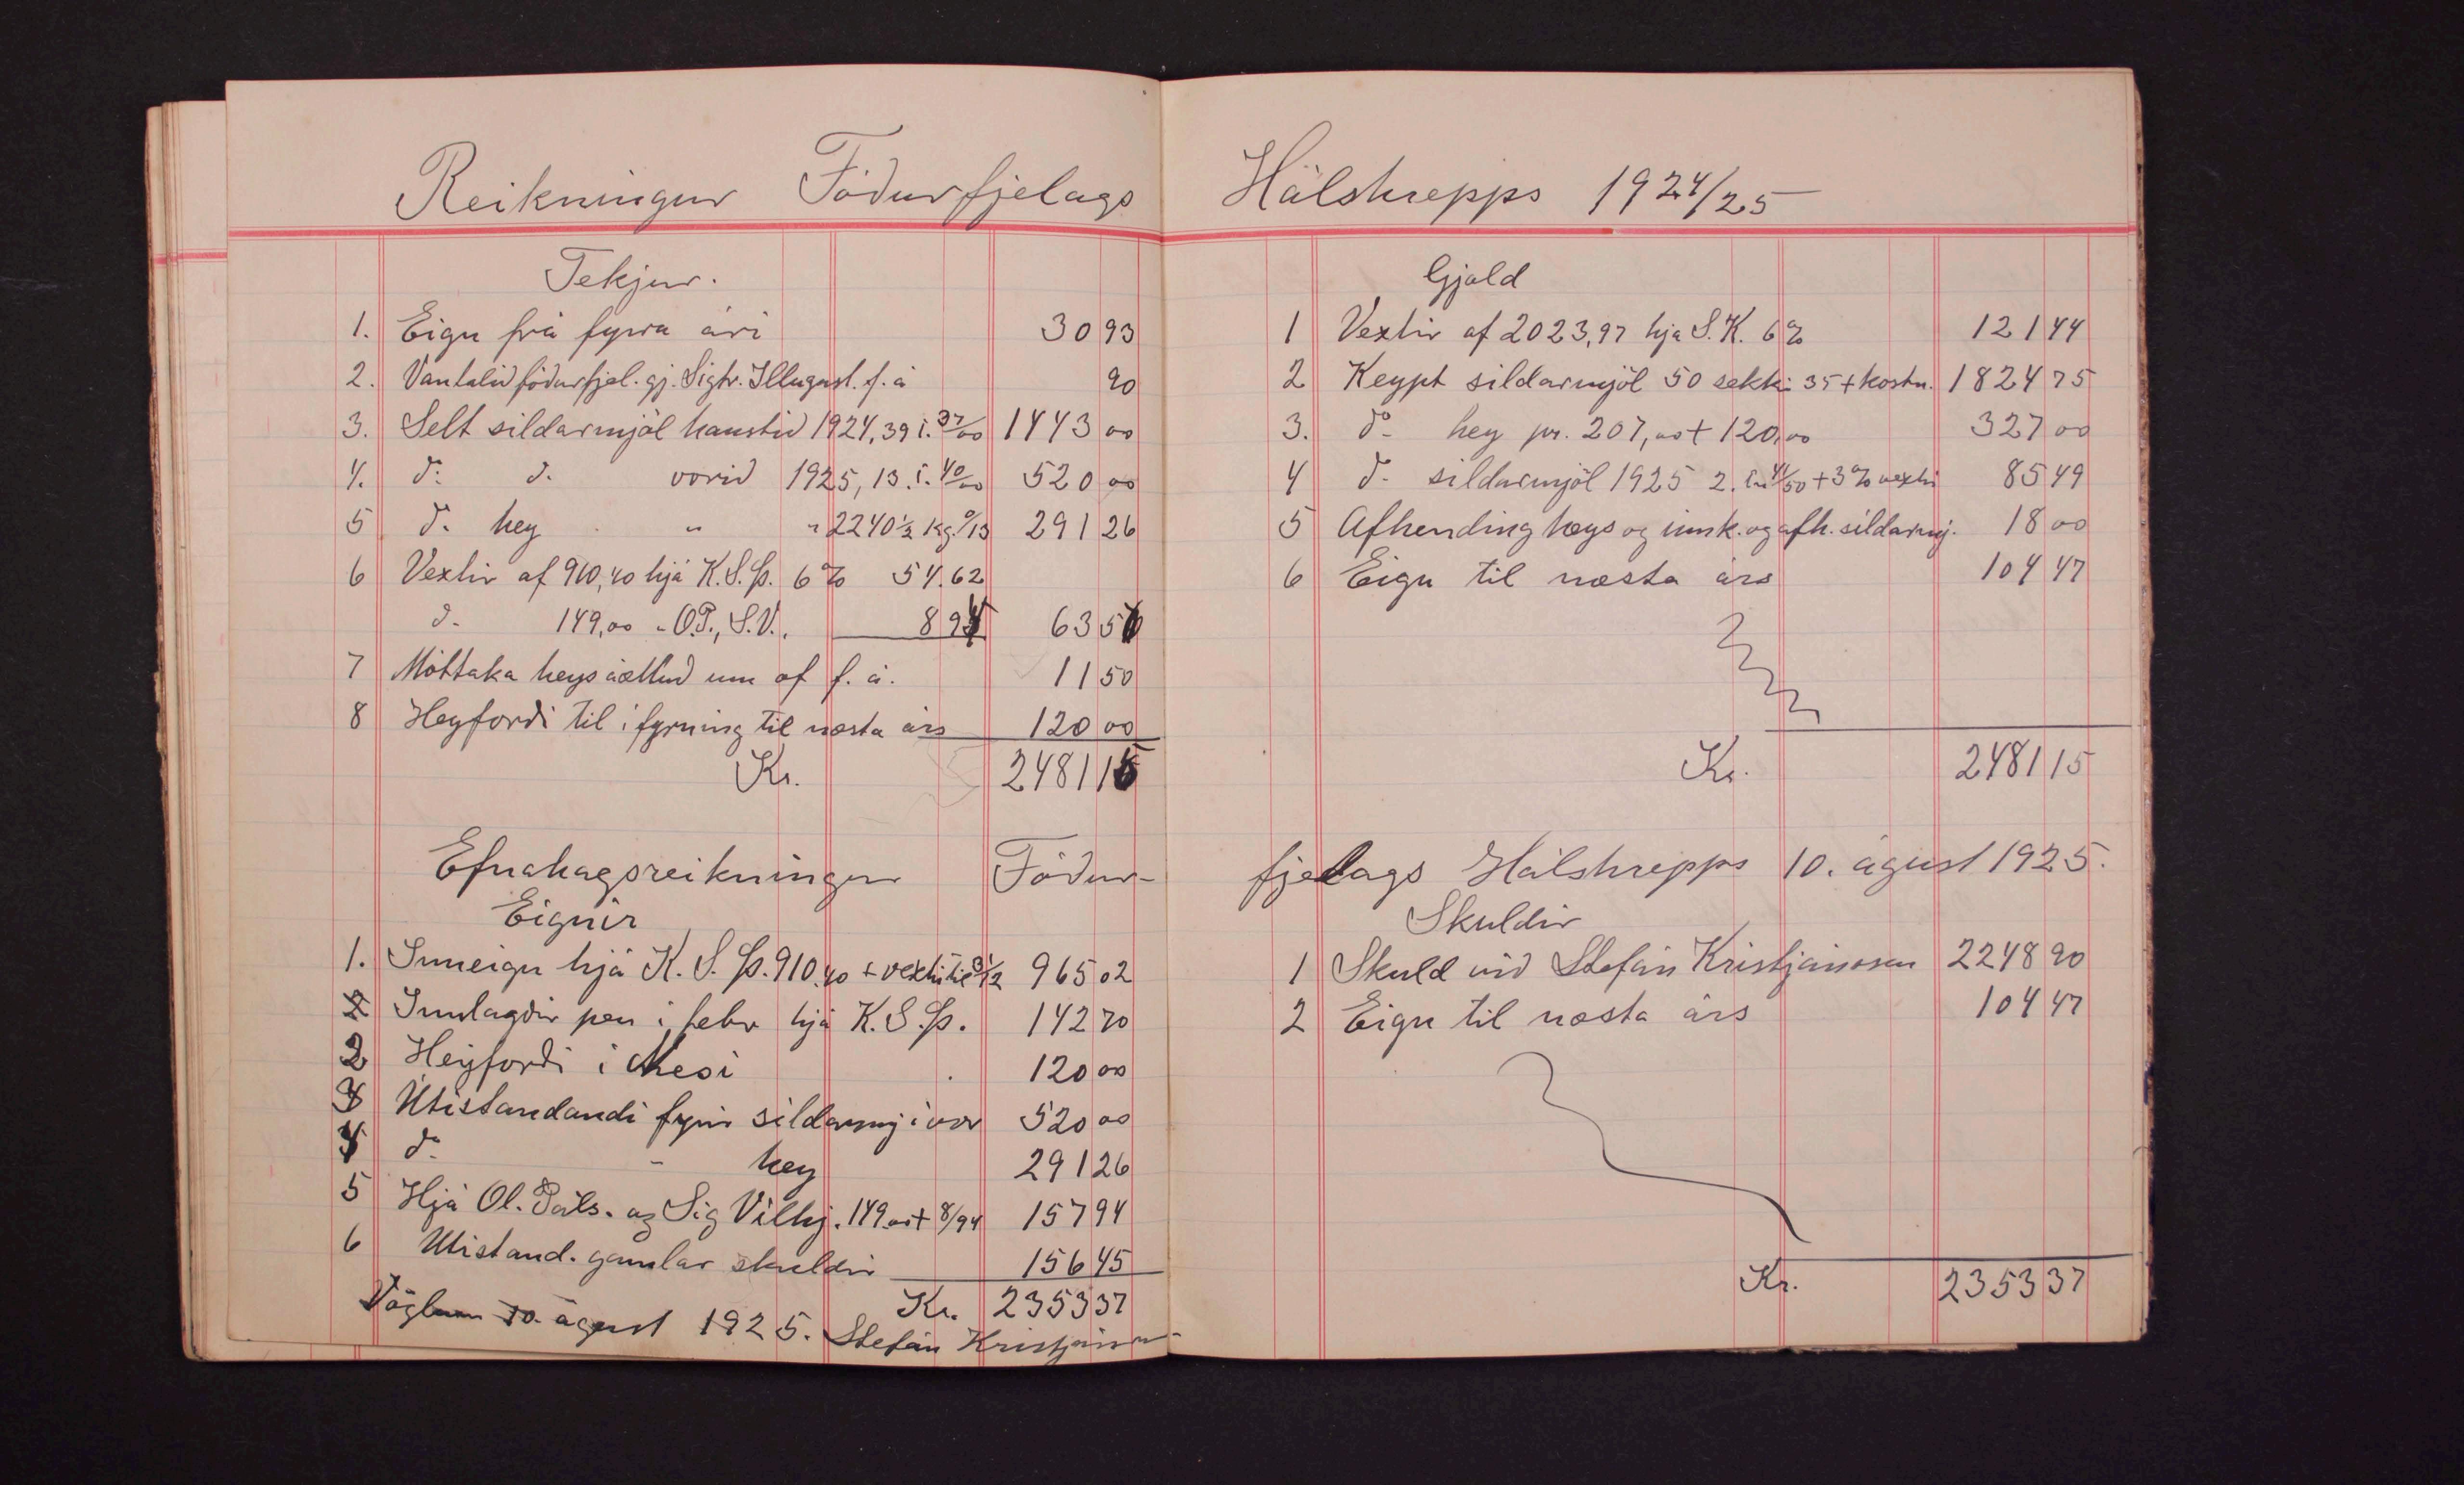 Reikningur Fóðurfjelags Hálshrepps 1924/25
Tekjur.
1. Eign frá fyrra ári 30 93
2. Vantalið fóðurfjel. gj. Sigtr. Illugast. f. á 90
3. Selt síldarmjöl haustið 1924, 39 í. 37/00 1443 00
4. do. do. vorið 1925, 13. í. 40/00 520 00
5 do. hey " " 2240 1/2 kg. 0/13 291 26
6 Vextir af 910,40 hjá K.S.Þ. 6% 54.62
do. 149,00 " O.P., S.V. 8 94 63 56
7 Móttaka heys áætluð um of f. á. 11 50
8 Heyforði til í fyrning til næsta árs 120 00
Kr. 2481 15
Efnahagsreikningur Fóður-
Eignir
1. Inneign hjá K.S.Þ. 910.40 + vextir til 31/12 965 02
2 Innlagðir pen í febr hjá K.S.Þ. 142 70
2 Heyforði í Nesi 120 00
3 Útistandandi fyrir síldarmj í vor 520 00
4 do. " hey 291 26
5 Hjá Ol. Páls. og Sig Vilhj. 149.00 + 8/94 157 94
6 Utistand. gamlar skuldir 156 45
Kr. 2353 37
Vöglum 10. ágúst 1925. Stefán Kristjánsson
Gjald
1 Vextir af 2023,97 hjá S.K. 6% 121 44
2 Keypt síldarmjöl 50 sekki 35 + kostn. 1824 75
3. do. hey pr. 207,00 + 120,00 327 00
4 do. síldarmjöl 1925 2. á 41/50 + 3% vexti 85 49
5 Afhending heys og innk. og afh. síldarmj. 18 00
6 Eign til næsta árs 104 47
Kr. 2481 15
fjelags Hálshrepps 10. ágúst 1925.
Skuldir
1 Skuld við Stefán Kristjánsson 2248 90
2 Eign til næsta árs 104 47
Kr. 2353 37